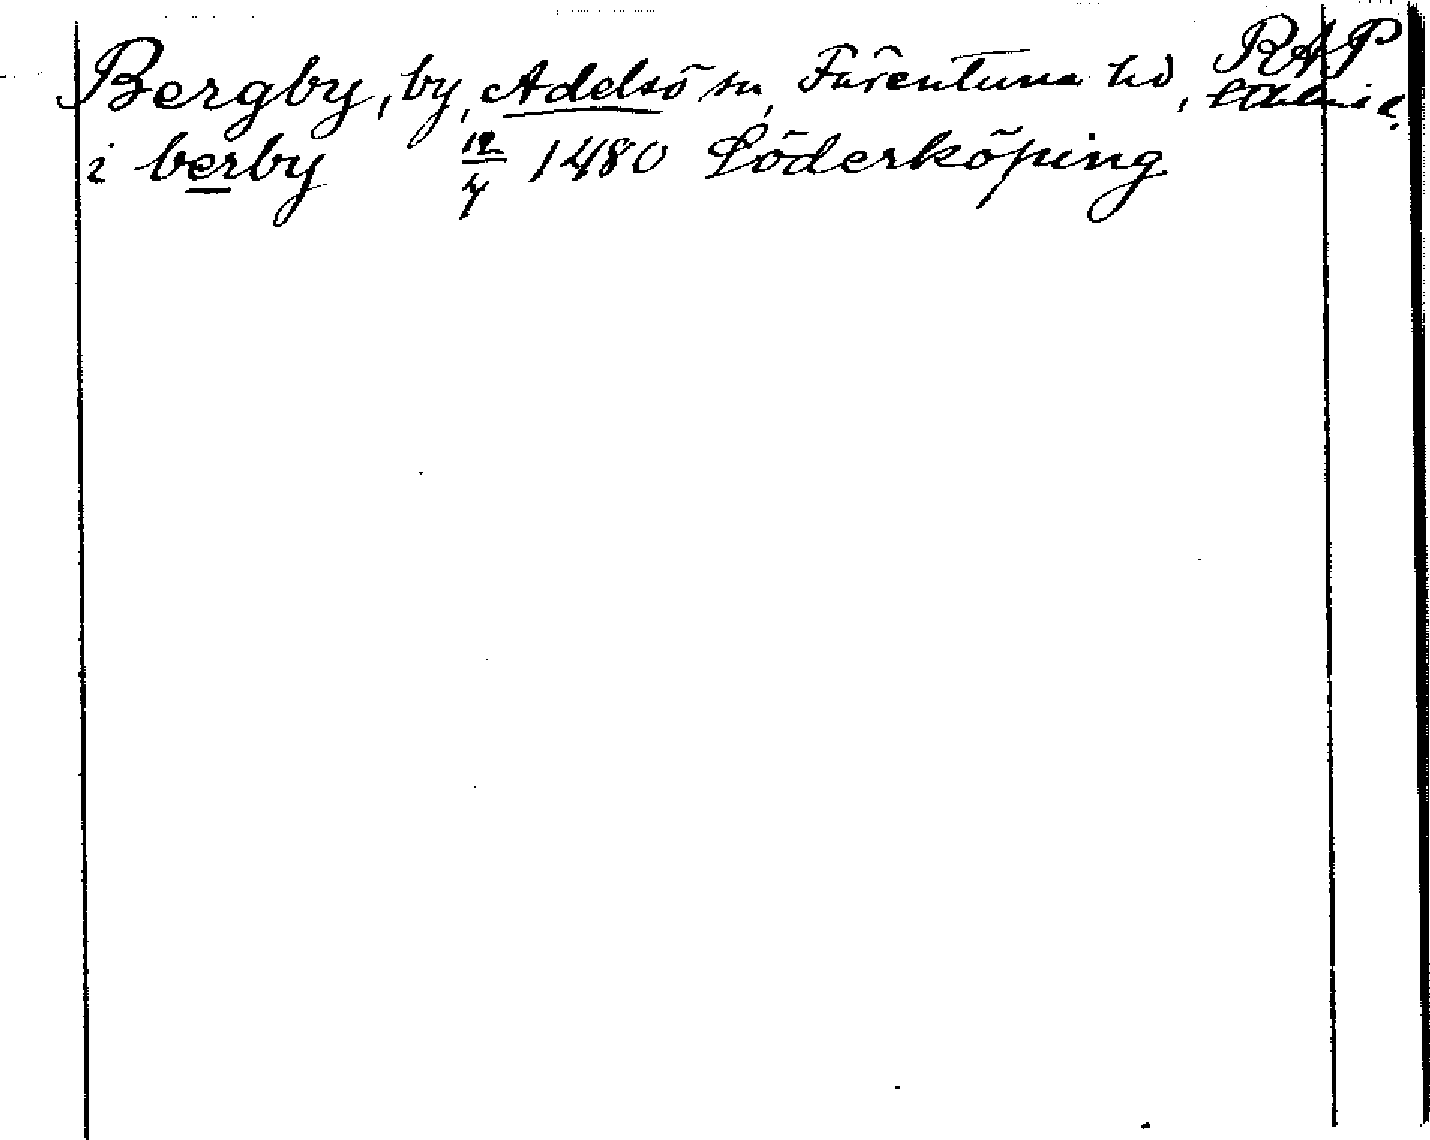 Bergby, by, Adelsö sn, Färentuna hd, RAP
i berby 12/4 1480 Söderköping